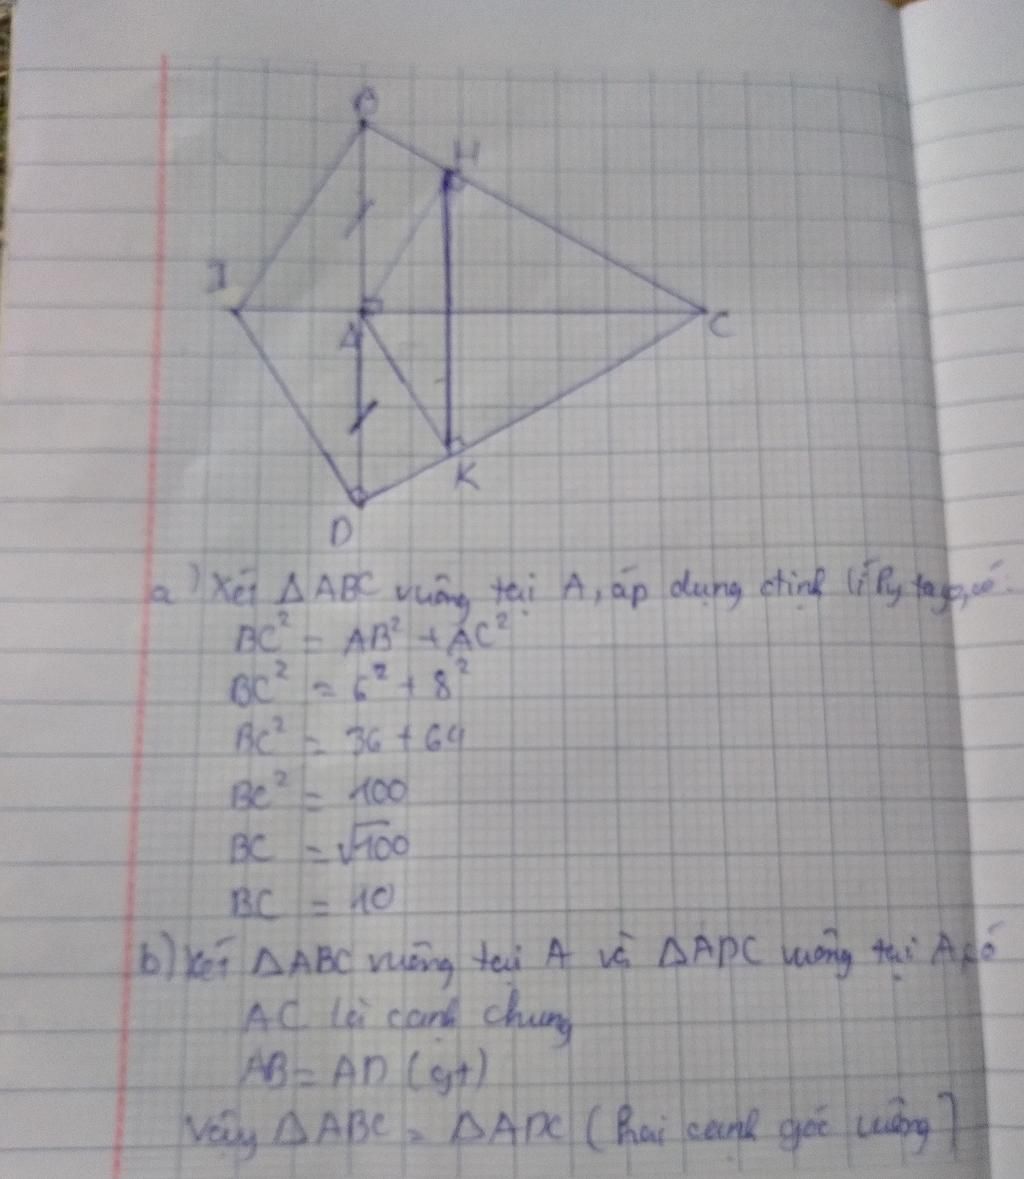 B
H
I
A
C
K
D
a) Xét ΔABC vuông tại A, áp dụng định lí Pytago, có:
BC² = AB² + AC²
BC² = 6² + 8²
BC² = 36 + 64
BC² = 100
BC = √100
BC = 10
b) Xét ΔABC vuông tại A và ΔADC vuông tại A có
AC là cạnh chung
AB = AD (gt)
Vậy ΔABC = ΔADC (hai cạnh góc vuông)